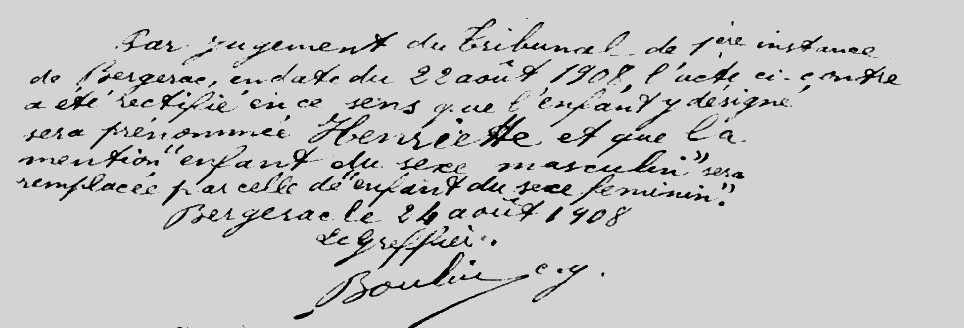 Par jugement du Tribunal de 1ère instance
de Bergerac, en date du 22 août 1908, l'acte ci-contre
a été rectifié en ce sens que l'enfant y désigné
sera prénommée Henriette et que la
mention "enfant du sexe masculin" sera
remplacée par celle de "enfant du sexe feminin".
Bergerac le 24 août 1908
Le Greffier.
Boulin